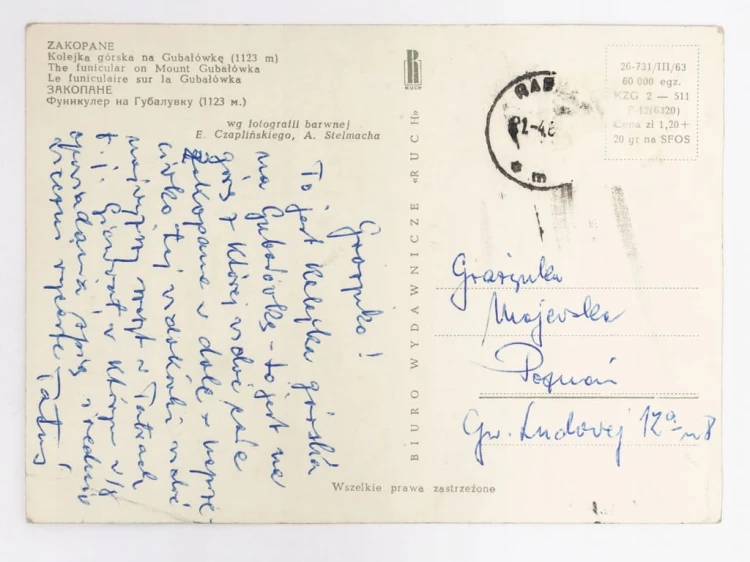 ZAKOPANE
Kolejka górska na Gubałówkę (1123 m)
The funicular on Mount Gubałówka
Le funiculaire sur la Gubałówka
ЗАКОПАНЕ
Фуникулер на Губалувку (1123 м.)
wg fotografii barwnej
E. Czaplińskiego, A. Stelmacha
RUCH
26-731/III/63
60 000 egz.
KZG 2 — 511
F-12(6320)
Cena zł 1,20+
20 gr na SFOS
BIURO WYDAWNICZE «RUCH»
Grażynko!
To jest kolejka górska
na Gubałówkę – to jest na
górę z której widać całe
Zakopane w dole z naprze-
ciwka tej widokówki widać
najwyższy szczyt w Tatrach
t. j. Giewont, w którym w/g
opowiadania śpią
rycerze Tatuś
Grażynka
Majewska
Poznań
Gw. Ludowej 12a m 8
Wszelkie prawa zastrzeżone